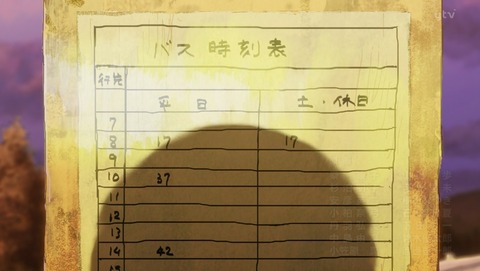 ytv
バス時刻表
行先
平日 土・休日
7
8 17 17
9
10 37
11
12
13
14 42